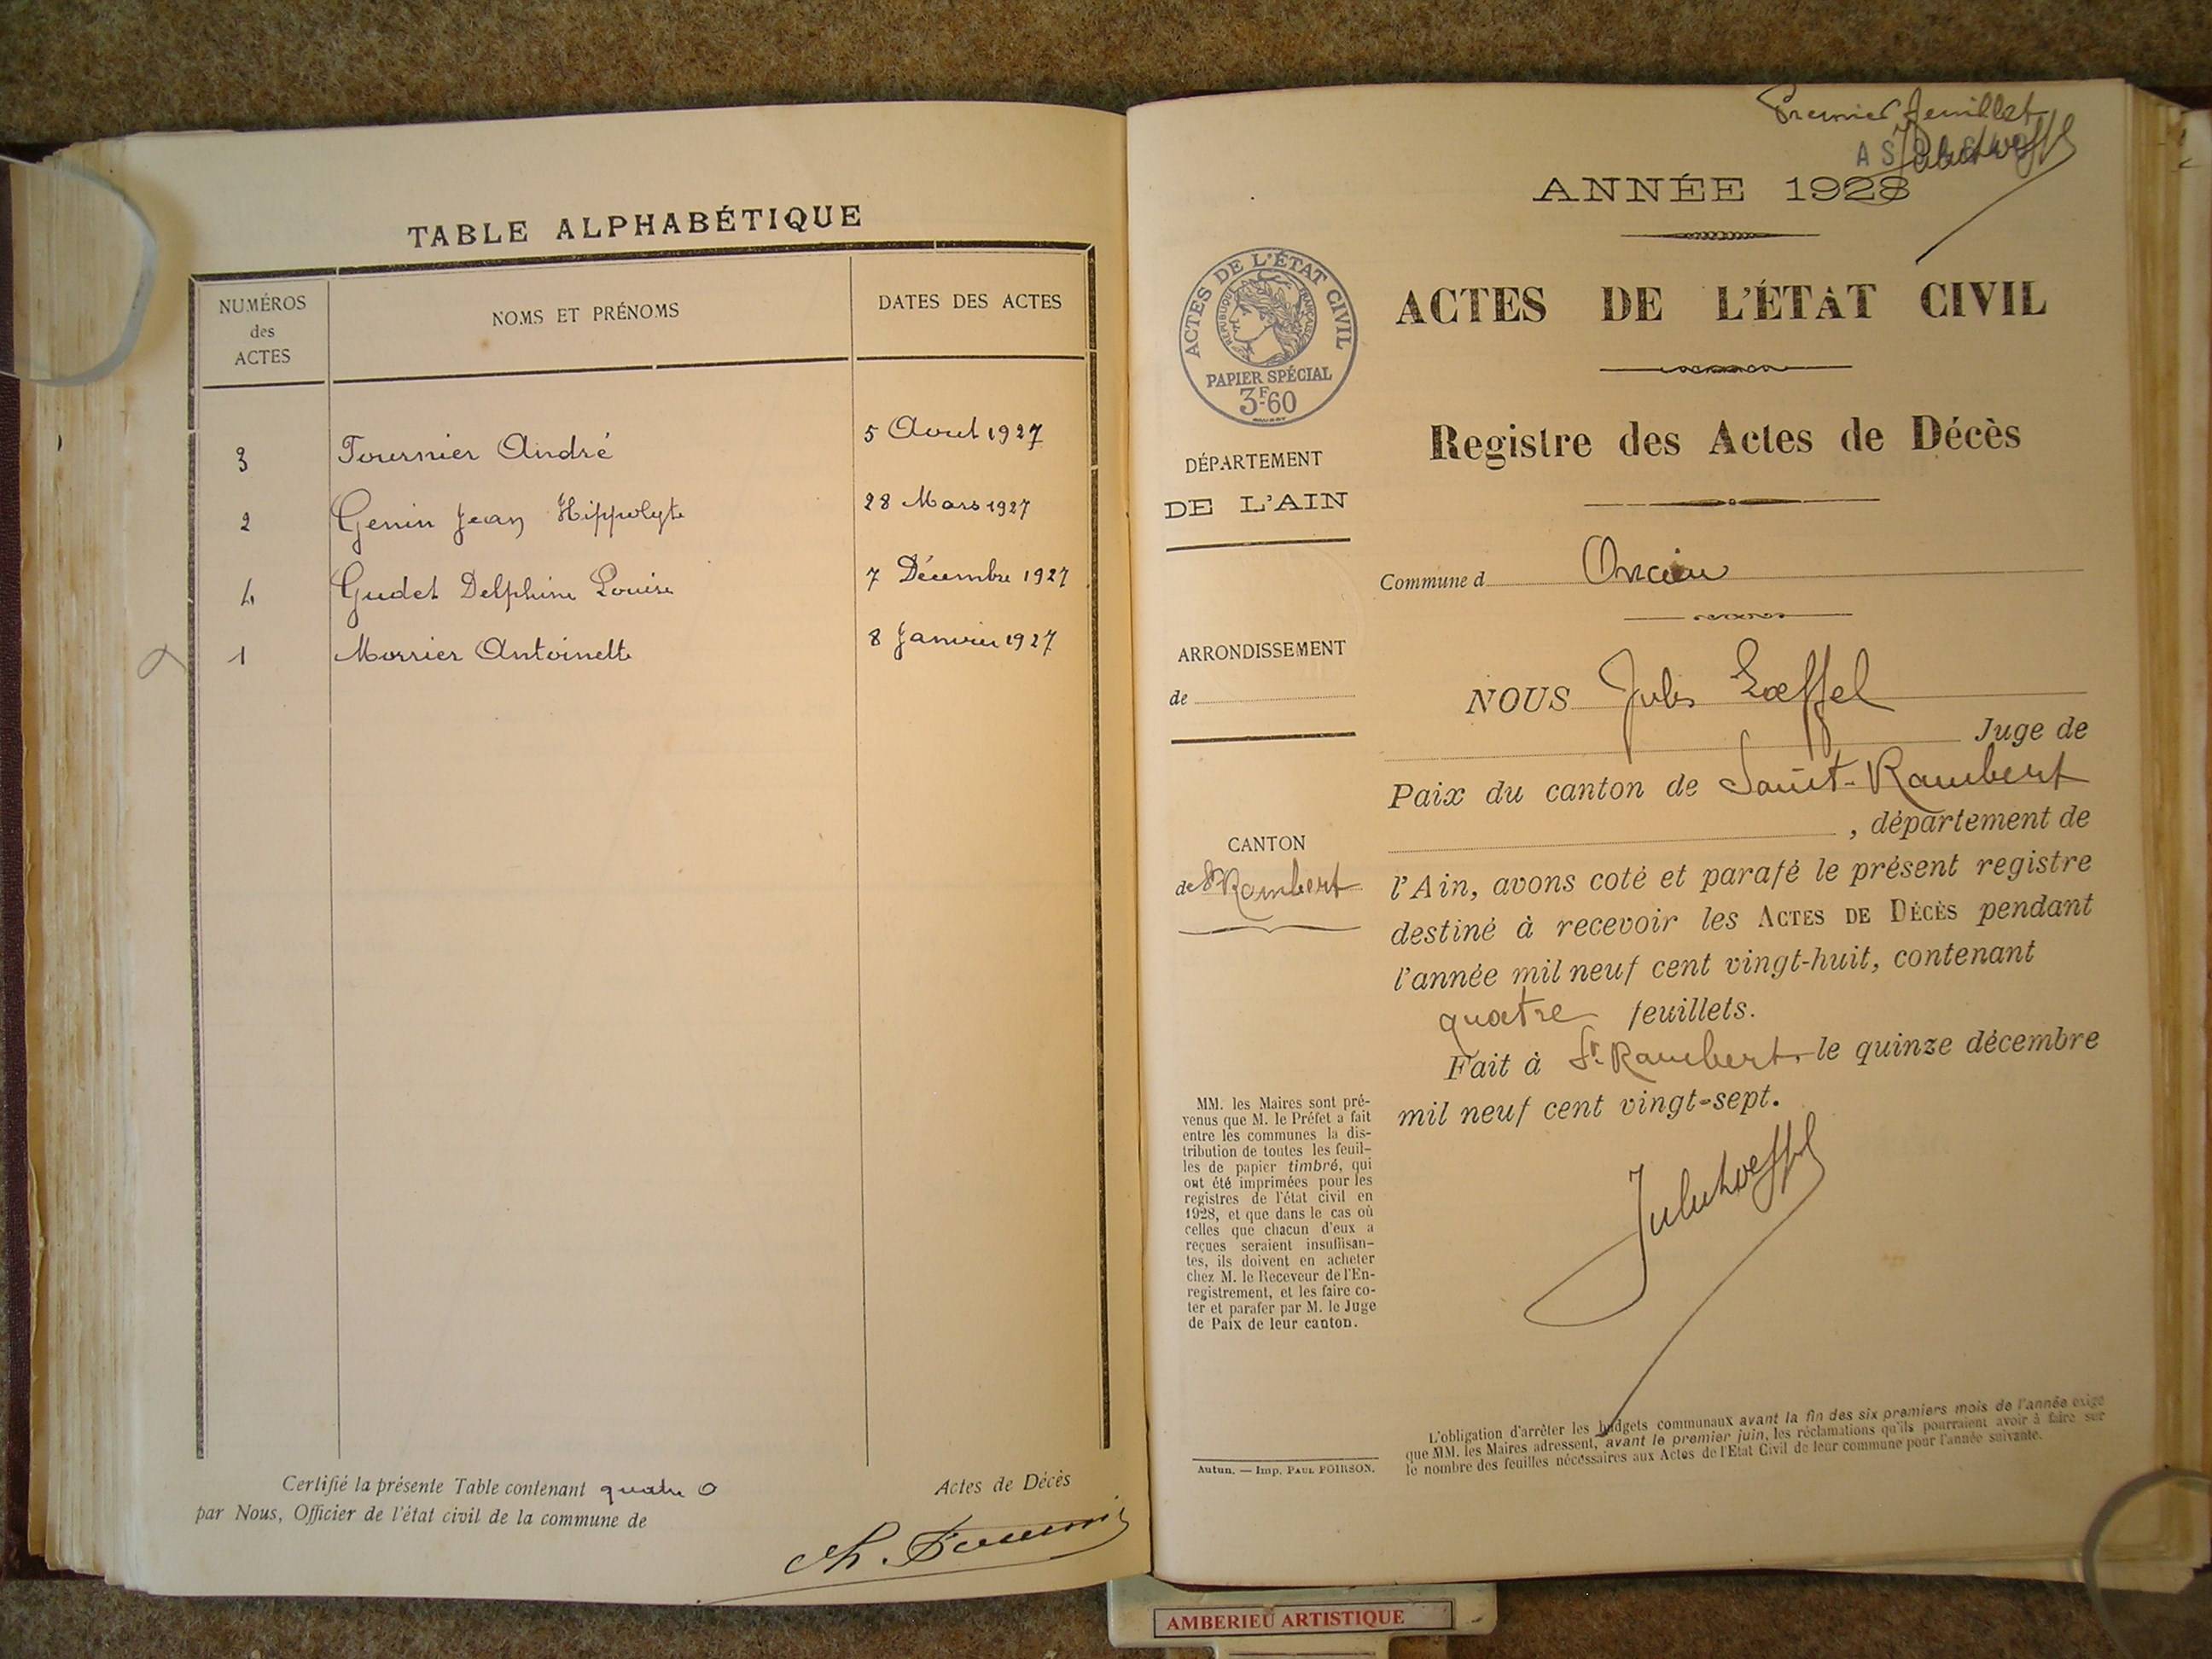 TABLE ALPHABÉTIQUE
NUMÉROS
des
ACTES
NOMS ET PRÉNOMS
DATES DES ACTES
3 Tournier André 5 Avril 1927
2 Genin Jean Hippolyte 28 Mars 1927
4 Gudet Delphine Louise 7 Décembre 1927
1 Morrier Antoinette 8 Janvier 1927
Certifié la présente Table contenant quatre Actes de Décès
par Nous, Officier de l'état civil de la commune de
Premier feuillet
ANNÉE 1928
ACTES DE L'ÉTAT CIVIL
RÉPUBLIQUE FRANÇAISE
PAPIER SPÉCIAL
3F.60
DÉPARTEMENT
DE L'AIN
ARRONDISSEMENT
de
CANTON
de St Rambert
MM. les Maires sont pré-
venus que M. le Préfet a fait
entre les communes la dis-
tribution de toutes les feuil-
les de papier timbré, qui
ont été imprimées pour les
registres de l'état civil en
1928, et que dans le cas où
celles que chacun d'eux a
reçues seraient insuffisan-
tes, ils doivent en acheter
chez M. le Receveur de l'En-
registrement, et les faire co-
ter et parafer par M. le Juge
de Paix de leur canton.
Autun. — Imp. PAUL POIRSON.
ACTES DE L'ÉTAT CIVIL
Registre des Actes de Décès
Commune d Oncieu
NOUS Jules Loeffel
Juge de
Paix du canton de Saint-Rambert
, département de
l'Ain, avons coté et parafé le présent registre
destiné à recevoir les ACTES DE DÉCÈS pendant
l'année mil neuf cent vingt-huit, contenant
quatre feuillets.
Fait à St Rambert, le quinze décembre
mil neuf cent vingt-sept.
Jules Loeffel
L'obligation d'arrêter les budgets communaux avant la fin des six premiers mois de l'année exige
que MM. les Maires adressent, avant le premier juin, les réclamations qu'ils pourraient avoir à faire sur
le nombre des feuilles nécessaires aux Actes de l'Etat Civil de leur commune pour l'année suivante.
AMBERIEU ARTISTIQUE